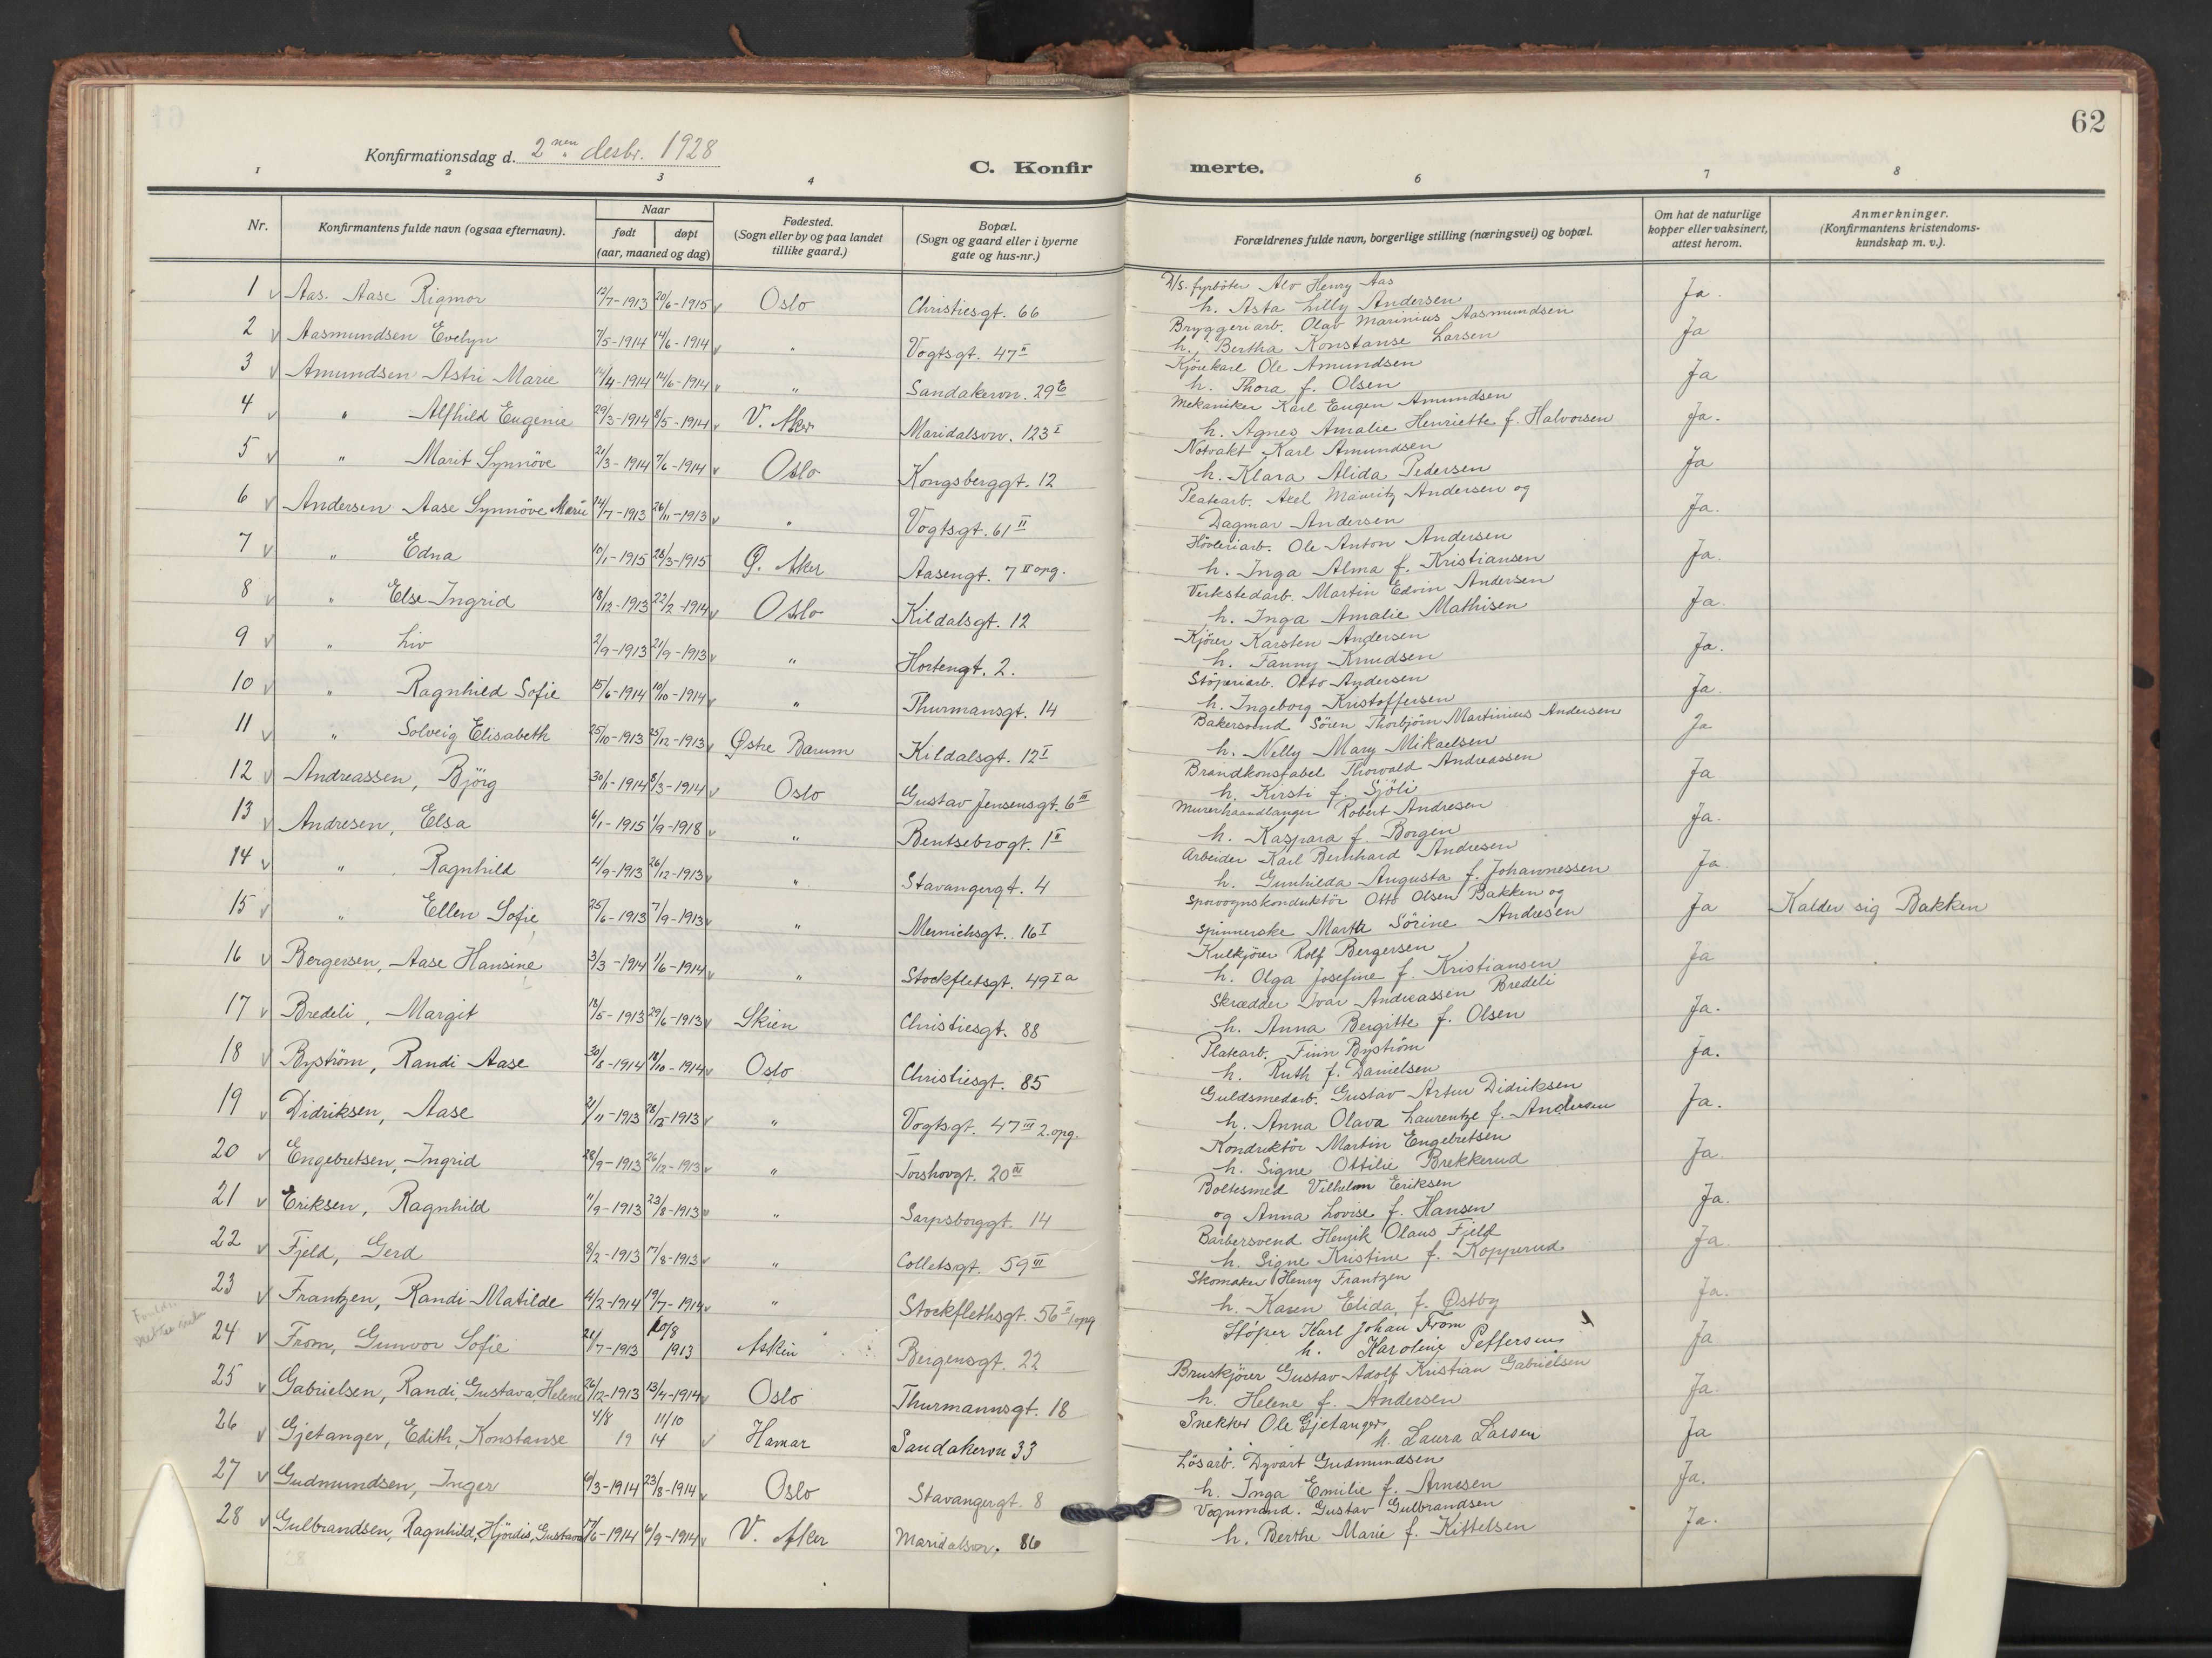 62
Konfirmationsdag d. 2nen desbr. 1928
C. Konfirmerte.
1 2 3 4 6 7 8
Nr. Konfirmantens fulde navn (ogsaa efternavn). Naar født døpt (aar, maaned og dag) Fødested. (Sogn eller by og paa landet tillike gaard.) Bopæl. (Sogn og gaard eller i byerne gate og hus-nr.) Forældrenes fulde navn, borgerlige stilling (næringsvei) og bopæl. Om hat de naturlige kopper eller vaksinert, attest herom. Anmerkninger. (Konfirmantens kristendoms-kundskap m. v.).
1 v Aas. Aase Rigmor 12/7-1913 20/6-1915 v Oslo Christiesgt. 66 D/s. fyrböter Alv Henry Aas Ja.
h. Asta Lilly Andersen
2 v Aasmundsen Evelyn 7/5-1914 14/6-1914 v " Vogtsgt. 47 II Bryggeriarb. Olav Marinius Aasmundsen Ja
h. Bertha Konstanse Larsen
3 v Amundsen Astri Marie 14/4-1914 14/6-1914 v " Sandakervn. 29 Kjörekarl Ole Amundsen Ja
h. Thora f. Olsen
4 v " Alfhild Eugenie 29/3-1914 8/5-1914 v V. Aker Maridalsvn. 123 I Mekaniker Karl Eugen Amundsen Ja.
h. Agnes Amalie Henriette f. Halvorsen
5 v " Marit Synnöve 21/3-1914 7/6-1914 v Oslo Kongsberggt. 12 Notvakt Karl Amundsen Ja
h. Klara Alida Pedersen
6 v Andersen Aase Synnöve Marie 14/7-1913 26/11-1913 v " Vogtsgt. 61 II Platearb. Axel Mauritz Andersen og Ja.
Dagmar Andersen
7 v " Edna 10/1-1915 28/3-1915 Ø. Aker Aasengt. 7 II opg. Höveriarb. Ole Anton Andersen Ja.
h. Inga Alma f. Kristiansen
8 v " Else Ingrid 18/12-1913 22/2-1914 v Oslo Kildalsgt. 12 Verkstedarb. Martin Edvin Andersen Ja.
h. Inga Amalie Mathisen
9 v " Liv 2/9-1913 21/9-1913 v " Hortengt. 2. Kjörer Karsten Andersen Ja.
h. Fanny Knudsen
10 v " Ragnhild Sofie 15/6-1914 10/10-1914 v " Thurmansgt. 14 Stöperiarb. Otto Andersen Ja.
h. Ingeborg Kristoffersen
11 v " Solveig Elisabeth 25/10-1913 25/12-1913 v Østre Bærum Kildalsgt. 12 I Bakersvend Sören Thorbjörn Martinius Andersen Ja
h. Nelly Mary Mikaelsen
12 v Andreassen, Björg 30/1-1914 8/3-1914 v Oslo Gustav Jensensgt. 6 III Brandkonstabel Thorvald Andreassen Ja
h. Kirsti f. Sjöli
13 v Andresen, Elsa 6/1-1915 1/9-1918 v " Bentsebrogt. 1 II Murerhaandlanger Robert Andresen Ja.
h. Kaspara f. Borgen
14 v " Ragnhild 4/9-1913 26/12-1913 v " Stavangergt. 4 Arbeider Karl Bernhard Andresen Ja.
h. Gunhilda Augusta f. Johannessen
15 v " Ellen Sofie 25/6-1913 7/9-1913 v " Mernichsgt. 16 I Sporvognskonduktör Otto Olsen Bakken og Ja Kalder sig Bakken
spinnerske Marthe Sörine Andresen
16 v Bergersen, Aase Hansine 3/3-1914 1/6-1914 v " Stockfletsgt. 49 I a Kulkjörer Rolf Bergersen Ja
h. Olga Josefine f. Kristiansen
17 v Bredeli, Margit 18/5-1913 29/6-1913 v Skien Christiesgt. 88 Skrædder Ivar Andreassen Bredeli Ja.
h. Anna Bergitte f. Olsen
18 v Byström, Randi Aase 30/8-1914 18/10-1914 v Oslo Christiesgt. 85 Platearb. Finn Byström Ja.
h. Ruth f. Danielsen
19 v Didriksen, Aase 21/11-1913 28/12-1913 v " Vogtsgt. 47 III 2.opg. Guldsmedarb. Gustav Artur Didriksen Ja.
h. Anna Olava Laurentze f. Andersen
20 v Engebretsen, Ingrid 28/9-1913 26/12-1913 v " Torshovgt. 20 III Konduktör Martin Engebretsen Ja.
h. Signe Ottilie Brekkerud
21 v Eriksen, Ragnhild 11/9-1913 23/8-1913 v " Sarpsborggt. 14 Boltesmed Vilhelm Eriksen Ja.
og Anna Lovise f. Hansen
22 v Fjeld, Gerd 3/2-1913 17/8-1913 v " Colletsgt. 59 III Barbersvend Henrik Olaus Fjeld Ja.
h. Signe Kristine f. Kopperud
23 v Frantzen, Randi Matilde 4/2-1914 19/7-1914 v " Stockflethsgt. 56 II 1 opg Skomaker Henry Frantzen Ja.
h. Karen Elida, f. Østby
24 v From, Gunvor Sofie 21/7-1913 10/8 1913 Askim Bergensgt. 22 Stöper Karl Johan From Ja
h. Karoline Pettersen
25 v Gabrielsen, Randi, Gustava, Helene 26/12-1913 13/4-1914 v Oslo Thurmannsgt. 18 Bruskjörer Gustav Adolf Kristian Gabrielsen Ja.
h. Helene f. Andersen
26 v Gjetanger, Edith, Konstanse 4/8 19 11/10 14 v Hamar Sandakervn 33 Snekker Ole Gjetanger Ja
h. Laura Larsen
27 v Gudmundsen, Inger 6/3-1914 23/8-1914 v Oslo Stavangergt. 8 Lösarb. Dyvart Gudmundsen Ja.
h. Inga Emilie f. Arnesen
28 v Gulbrandsen, Ragnhild, Hjördis, Gustava 17/6-1914 6/9-1914 v V. Aker Maridalsvn. 86 Vognmand. Gustav Gulbrandsen Ja.
h. Berthe Marie f. Kittelsen
28